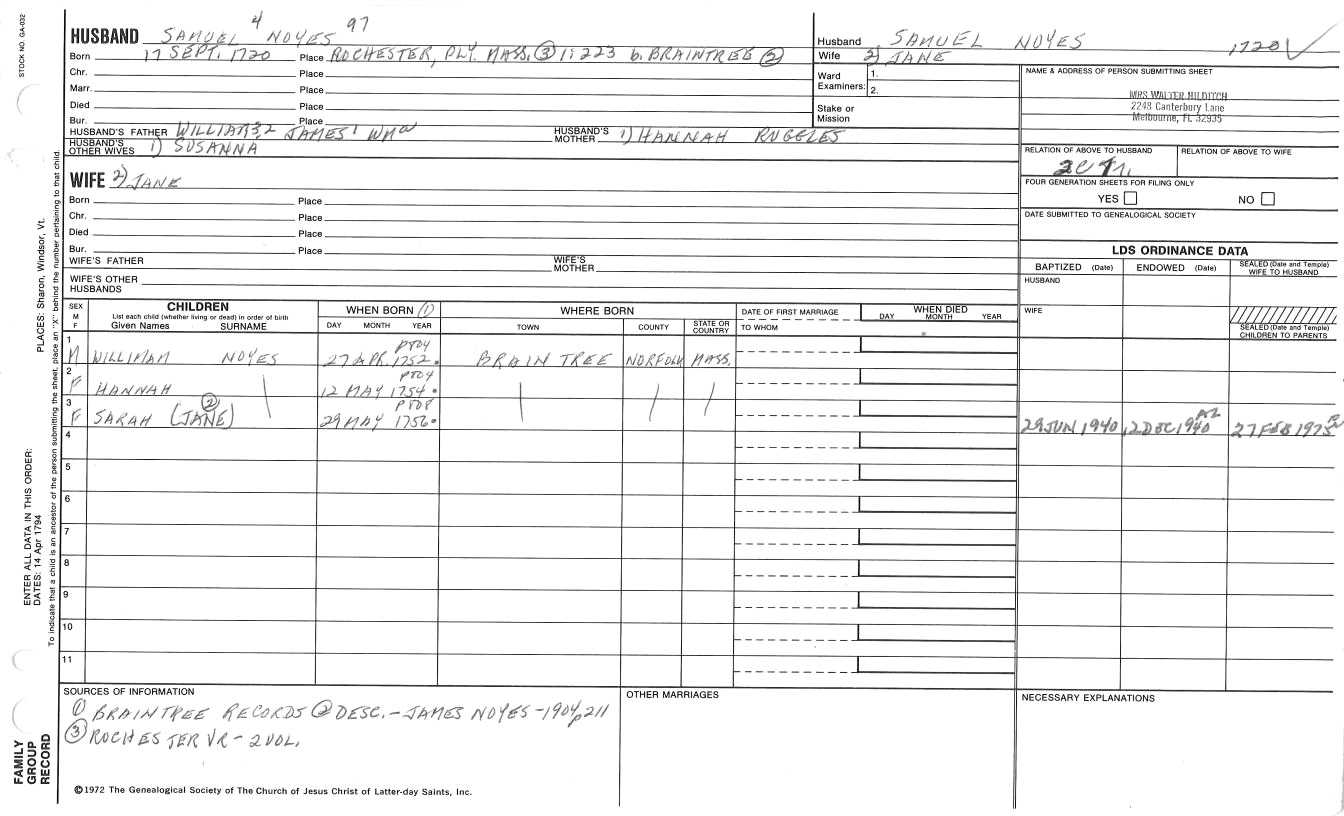 STOCK NO. GA-032
HUSBAND SAMUEL 4 NOYES 97
Born 17 SEPT. 1720 Place ROCHESTER, PLY. MASS. ③ 1:223 b. BRAINTREE ②
Chr. Place
Marr. Place
Died Place
Bur. Place
HUSBAND'S FATHER WILLIAM 3,2 JAMES 1 WM HUSBAND'S MOTHER 1) HANNAH RUGGLES
HUSBAND'S OTHER WIVES 1) SUSANNA
Husband SAMUEL NOYES 1720
Wife 2) JANE
Ward Examiners: 1.
2.
Stake or Mission
NAME & ADDRESS OF PERSON SUBMITTING SHEET
MRS WALTER HILDITCH
2248 Canterbury Lane
Melbourne, FL 32935
RELATION OF ABOVE TO HUSBAND RELATION OF ABOVE TO WIFE
FOUR GENERATION SHEETS FOR FILING ONLY
YES NO
DATE SUBMITTED TO GENEALOGICAL SOCIETY
WIFE 2) JANE
Born Place
Chr. Place
Died Place
Bur. Place
WIFE'S FATHER WIFE'S MOTHER
WIFE'S OTHER HUSBANDS
LDS ORDINANCE DATA
BAPTIZED (Date) ENDOWED (Date) SEALED (Date and Temple) WIFE TO HUSBAND
HUSBAND
WIFE
SEALED (Date and Temple) CHILDREN TO PARENTS
SEX M F
CHILDREN
List each child (whether living or dead) in order of birth
Given Names SURNAME
WHEN BORN (1)
DAY MONTH YEAR
WHERE BORN
TOWN COUNTY STATE OR COUNTRY
DATE OF FIRST MARRIAGE
TO WHOM
WHEN DIED
DAY MONTH YEAR
1 M WILLIMAM NOYES 27 APR. 1752. BRAINTREE NORFOLK MASS.
2 F HANNAH 12 MAY 1754.
3 F SARAH (JANE) ② 29 MAY 1756. 29 JUN 1940 2 DEC 1940 AZ 27 FEB 1975
4
5
6
7
8
9
10
11
SOURCES OF INFORMATION
① BRAINTREE RECORDS ② DESC. - JAMES NOYES - 1904 p211
③ ROCHESTER VR - 2 VOL.
OTHER MARRIAGES
NECESSARY EXPLANATIONS
©1972 The Genealogical Society of The Church of Jesus Christ of Latter-day Saints, Inc.
FAMILY GROUP RECORD
ENTER ALL DATA IN THIS ORDER:
DATES: 14 Apr 1794
PLACES: Sharon, Windsor, Vt.
To indicate that a child is an ancestor of the person submitting the sheet, place an "X" behind the number pertaining to that child.